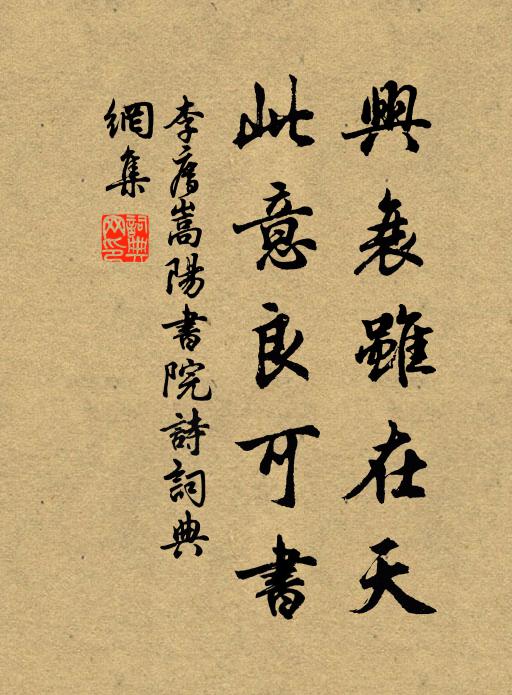 興衰雖在天
此意良可書
李廌嵩陽書院詩詞典
網集
詞典網印